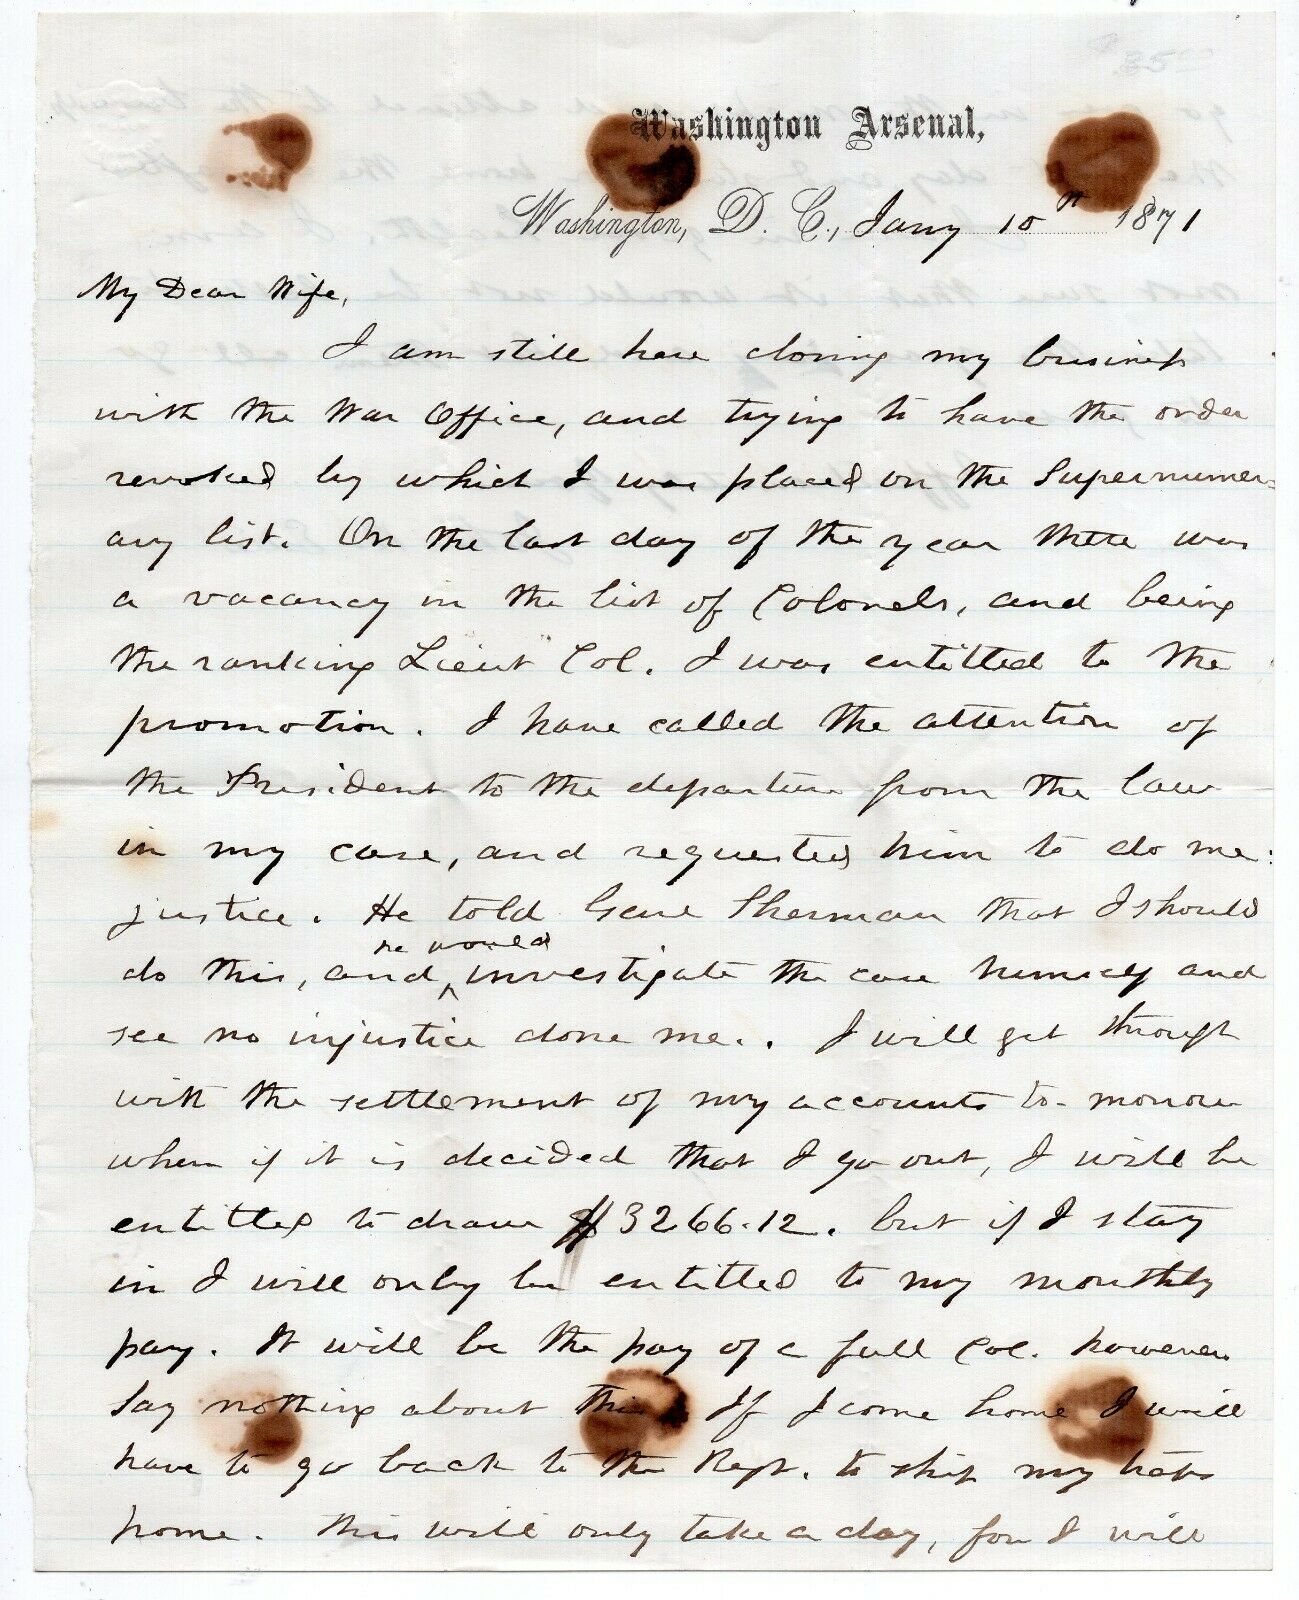 Washington Arsenal,
Washington, D. C., Jany 10th 1871
My Dear Wife,
I am still here closing my business
with the War Office, and trying to have the order
revoked by which I was placed on the Supernumer=
ary list. On the last day of the year there was
a vacancy in the list of Colonels, and being
the ranking Lieut Col. I was entitled to the
promotion. I have called the attention of
the President to the departure from the law
in my case, and requested him to do me
justice. He told Genl Sherman that I should
do this, and he would investigate the case himself and
see no injustice done me. I will get through
with the settlement of my accounts to-morrow
when if it is decided that I go out, I will be
entitled to draw $3266.12. but if I stay
in I will only be entitled to my monthly
pay. It will be the pay of a full Col. however
say nothing about this. If I come home I will
have to go back to the Regt. to ship my
home. This will only take a day, for I will